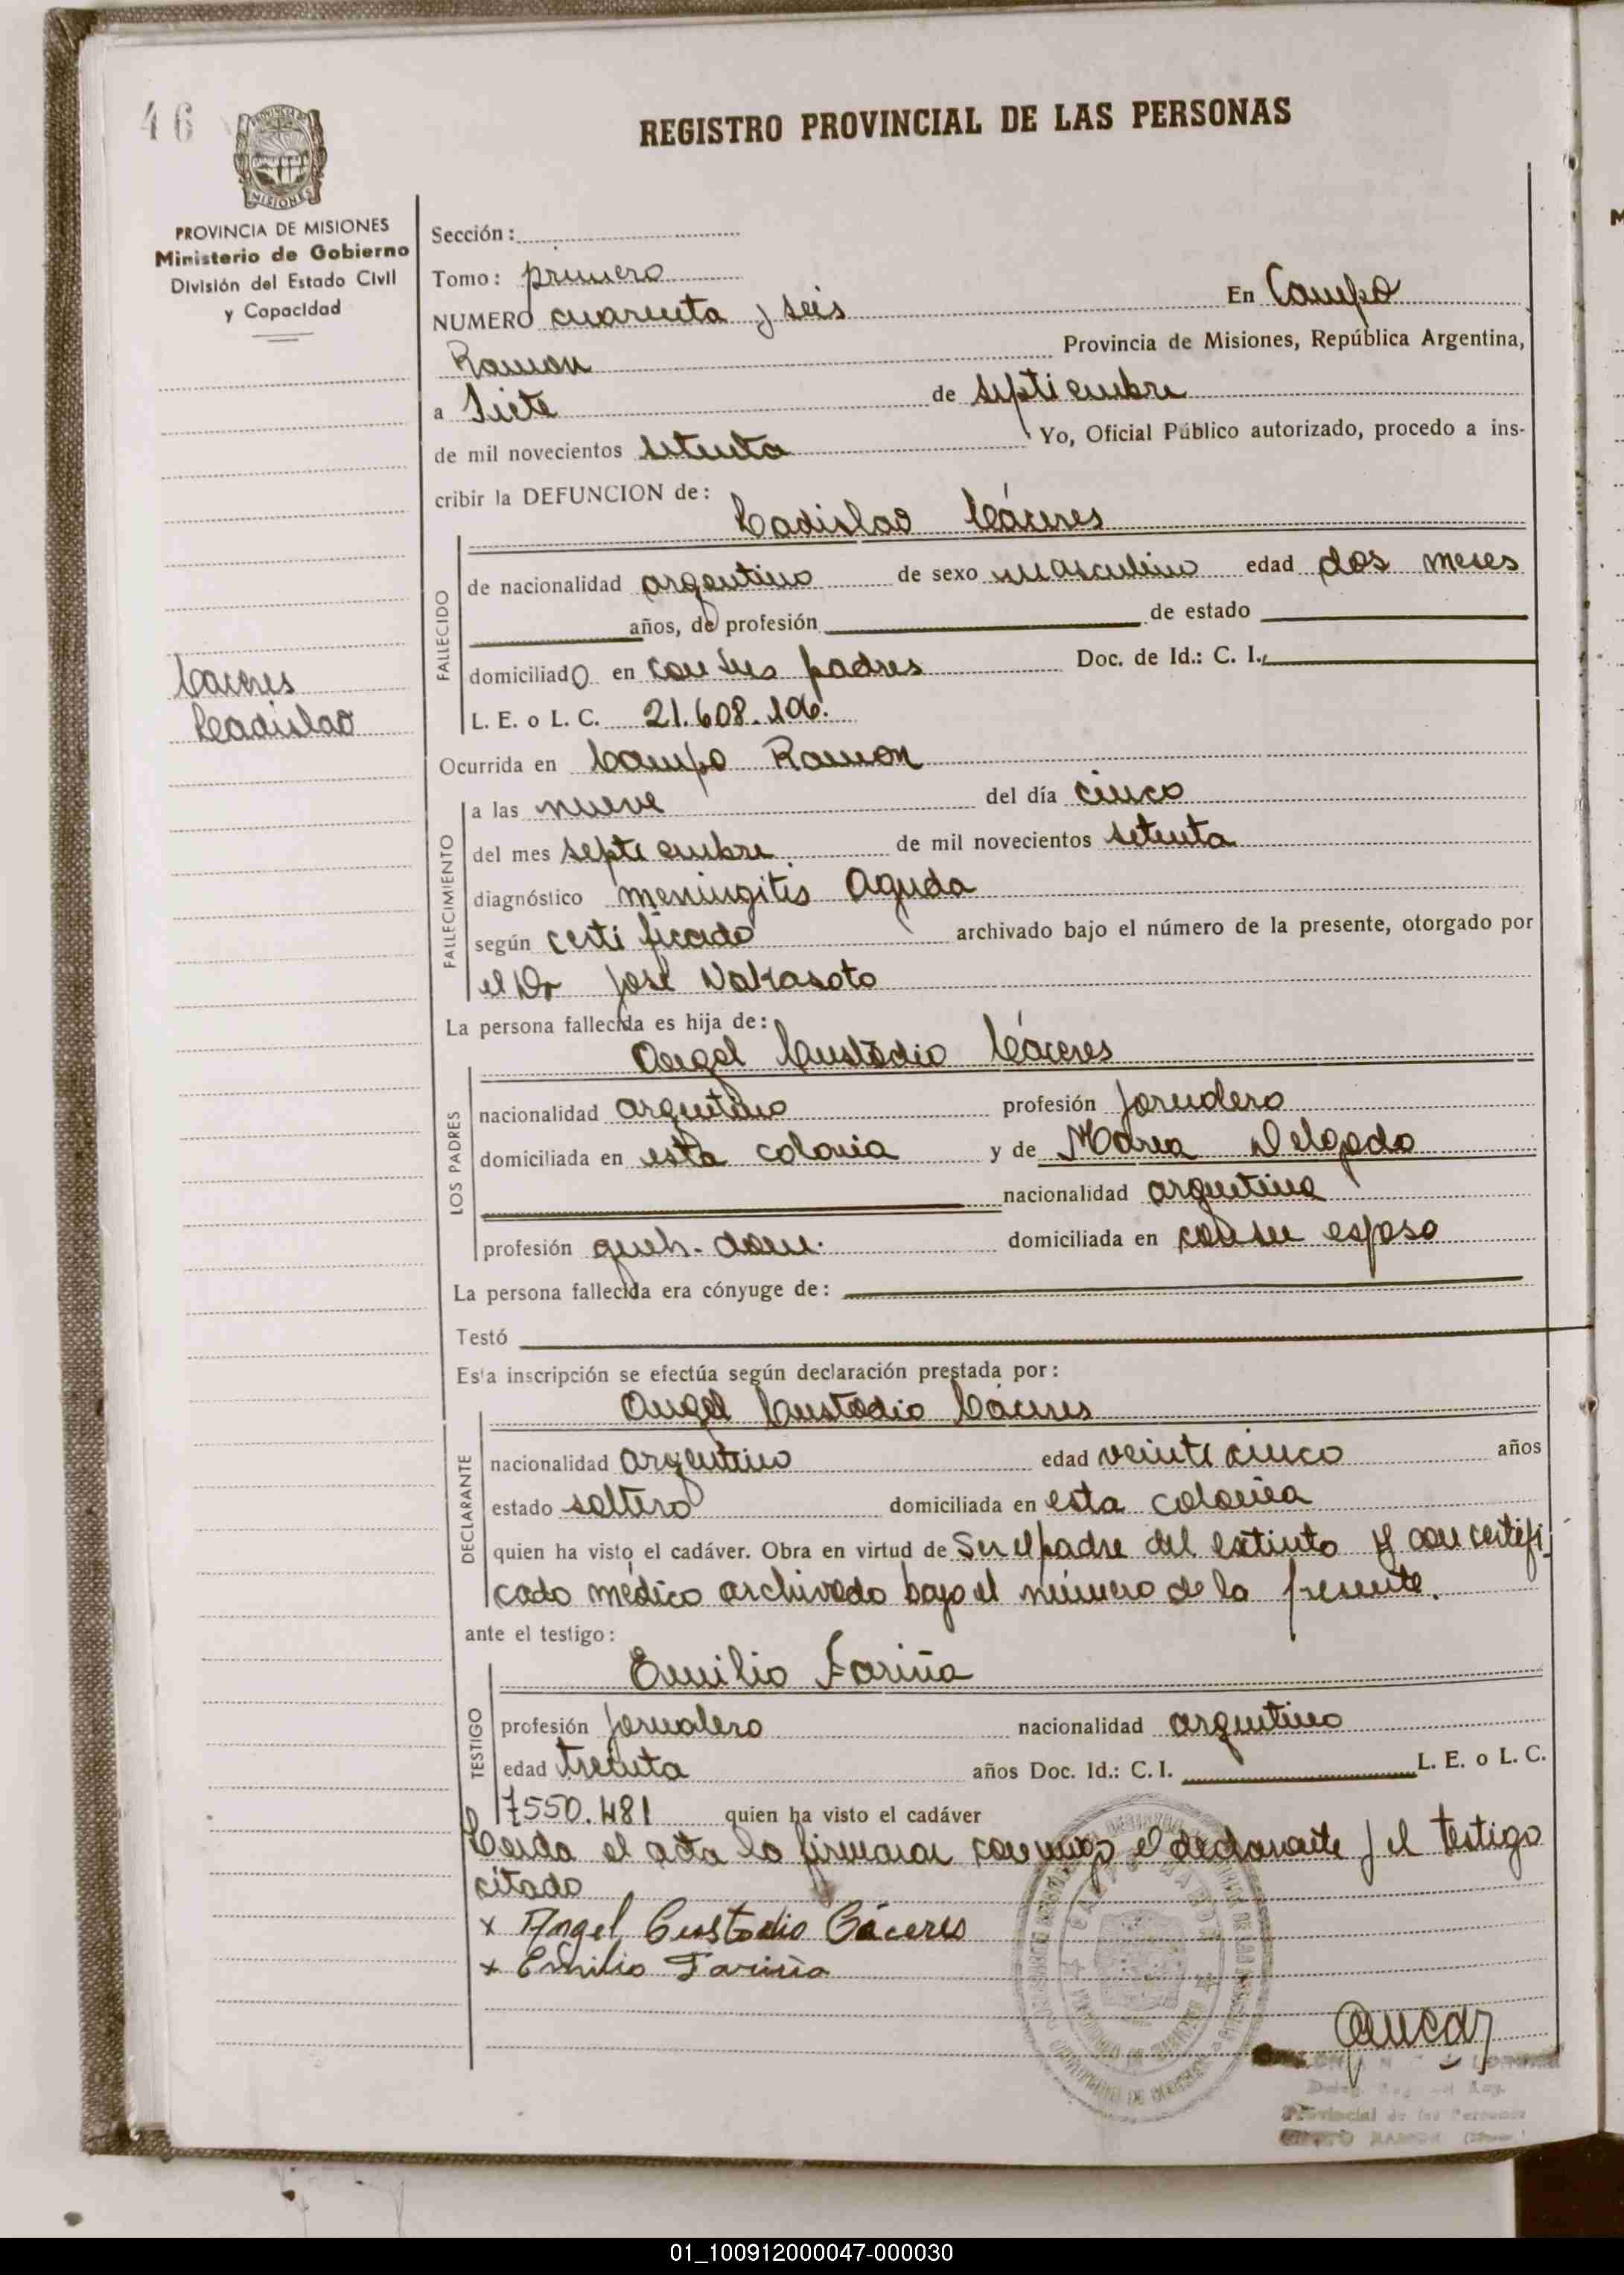 46
REGISTRO PROVINCIAL DE LAS PERSONAS
MISIONES
PROVINCIA DE MISIONES
Ministerio de Gobierno
División del Estado Civil
y Capacidad
Sección:
Tomo: primero
NUMERO cuarenta y seis En Campo
Ramon Provincia de Misiones, República Argentina,
a Siete de septiembre
de mil novecientos setenta Yo, Oficial Público autorizado, procedo a ins-
cribir la DEFUNCION de:
Ladislao Cáceres
FALLECIDO
de nacionalidad argentino de sexo masculino edad dos meses
años, de profesión de estado
domiciliado en con sus padres Doc. de Id.: C. I.
Caceres
Ladislao
L. E. o L. C. 21.608.106.
Ocurrida en Campo Ramon
FALLECIMIENTO
a las nueve del día cinco
del mes septiembre de mil novecientos setenta
diagnóstico meningitis Aguda
según certificado archivado bajo el número de la presente, otorgado por
el Dr José Nakasoto
La persona fallecida es hija de:
Angel Custodio Cáceres
LOS PADRES
nacionalidad argentino profesión Jornalero
domiciliada en esta colonia y de Maria Delgado
nacionalidad argentina
profesión queh. dom. domiciliada en con su esposo
La persona fallecida era cónyuge de:
Testó
Esta inscripción se efectúa según declaración prestada por:
Angel Custodio Cáceres
DECLARANTE
nacionalidad Argentino edad veinticinco años
estado soltero domiciliada en esta colonia
quien ha visto el cadáver. Obra en virtud de Ser el padre del extinto y con certifi
cado médico archivado bajo el número de la presente.
ante el testigo:
Emilio Fariña
TESTIGO
profesión Jornalero nacionalidad argentino
edad treinta años Doc. Id.: C. I. L. E. o L. C.
7550.481 quien ha visto el cadáver
Leida el acta la firmaran conmigo el declarante y el testigo
citado
x Angel Custodio Cáceres
x Emilio Fariña
Provincial de las Personas
RAMON
01_100912000047-000030